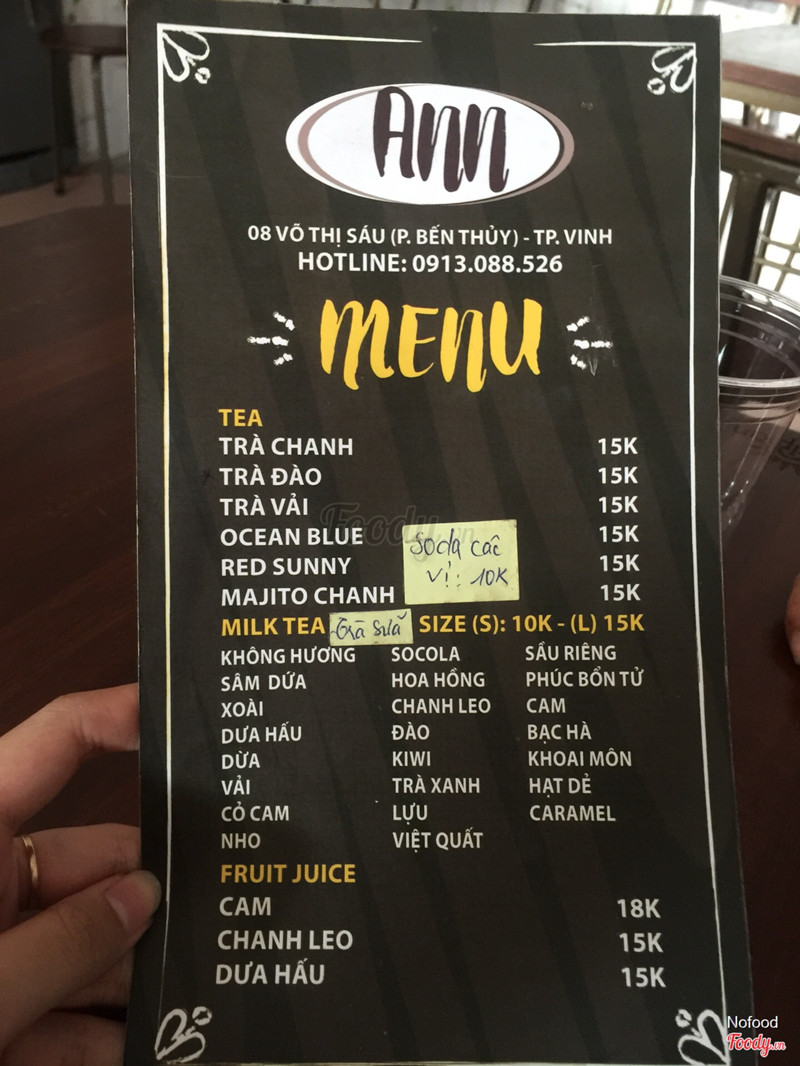 Ann
08 VÕ THỊ SÁU (P. BẾN THỦY) - TP. VINH
HOTLINE: 0913.088.526
MENU
TEA
TRÀ CHANH 15K
TRÀ ĐÀO 15K
TRÀ VẢI 15K
OCEAN BLUE 15K
RED SUNNY 15K
MAJITO CHANH 15K
Soda các
vị: 10K
Foody.vn
MILK TEA Trà sữa SIZE (S): 10K - (L) 15K
KHÔNG HƯƠNG SOCOLA SẦU RIÊNG
SÂM DỨA HOA HỒNG PHÚC BỒN TỬ
XOÀI CHANH LEO CAM
DƯA HẤU ĐÀO BẠC HÀ
DỪA KIWI KHOAI MÔN
VẢI TRÀ XANH HẠT DẺ
CỎ CAM LỰU CARAMEL
NHO VIỆT QUẤT
FRUIT JUICE
CAM 18K
CHANH LEO 15K
DƯA HẤU 15K
Nofood
Foody.vn